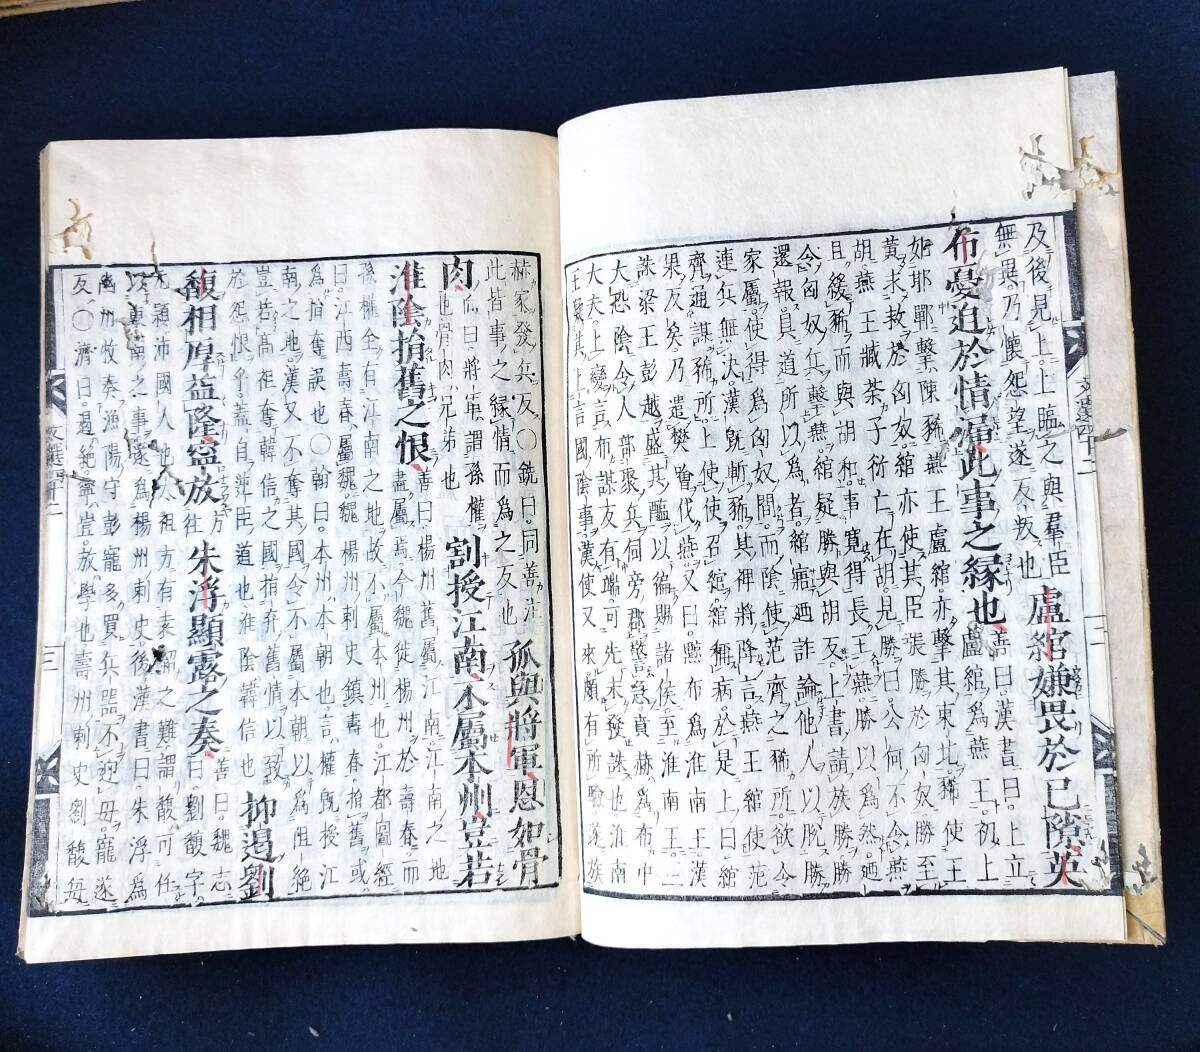 及後見上上臨之與羣臣
無異乃懷怨望遂反叛也
盧綰嫌畏於已隙英
布憂迫於情漏此事之縁也
善曰漢書曰上立
盧綰爲燕王初上
如邯鄲擊陳豨燕王盧綰亦擊其東北豨使王
黄求救於匈奴綰亦使其臣張勝於匈奴勝至
胡燕王臧荼子衍亡在胡見勝曰公何不令燕
且緩豨而與胡和事寛得長王燕勝以爲然廼
令匈奴兵擊燕綰疑勝與胡反上書請族勝勝
還報具道所以爲者綰寤廼詐論他人以脱勝
家屬使得爲匈奴間而陰使范齊之豨所欲令
連兵無決漢既斬豨其裨將降言燕王綰使范
齊通謀豨所上使使召綰綰稱病於是上曰綰
果反矣乃遣樊噲代燕又曰黥布爲淮南王漢
誅梁王彭越盛其醢以徧賜諸侯至淮南王二
大恐陰令人部聚兵伺旁郡警急賁赫爲布中
大夫上變言布謀反有端可先未發誅也淮南
王疑其上言國陰事漢使又來頗有所驗遂族
赫家發兵反〇銑曰同善注
此皆事之縁情而爲之反也
孤與將軍恩如骨
肉
曰將軍謂孫權
也骨肉兄弟也
割授江南不屬本州豈若
淮陰捐舊之恨
善曰楊州舊屬江南江南之地
盡屬焉今魏徙楊州於壽春而
孫權全有江南之地故不屬本州也江都圖經
曰江西壽春屬魏魏楊州刺史鎮壽春捐舊或
爲捐奪誤也〇翰曰本州本朝也言權既授江
南之地漢又不奪其國令不屬本朝以爲阻絶
豈若高祖奪韓信之國捐弃舊情以致
於怨恨乎蓋自逆臣道也淮陰韓信也
抑遏劉
馥相厚益隆寧放
方
往
朱浮顯露之奏
善曰魏志
曰劉馥字
元穎沛國人太祖方有袁紹之難謂馥可任
以東南之事遂爲楊州刺史後漢書曰朱浮爲
幽州牧奏漁陽守彭寵多買兵器不迎母寵遂
反〇濟曰遏絶寧豈放學也壽州刺史劉馥毎